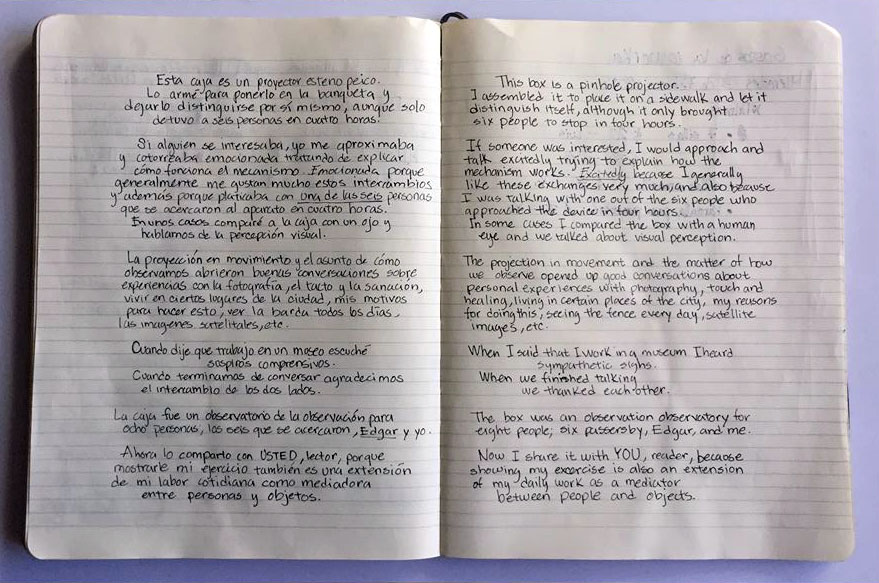 Esta caja es un proyector estenopeico.
Lo armé para ponerlo en la banqueta y
dejarlo distinguirse por sí mismo, aunque solo
detuvo a seis personas en cuatro horas.
Si alguien se interesaba, yo me aproximaba
y cotorreaba emocionada tratando de explicar
cómo funciona el mecanismo. Emocionada porque
generalmente me gustan mucho estos intercambios
y además porque platicaba con una de las seis personas
que se acercaron al aparato en cuatro horas.
En unos casos comparé a la caja con un ojo y
hablamos de la percepción visual.
La proyección en movimiento y el asunto de cómo
observamos abrieron buenas conversaciones sobre
experiencias con la fotografía, el tacto y la sanación,
vivir en ciertos lugares de la ciudad, mis motivos
para hacer esto, ver la barda todos los días,
las imágenes satelitales, etc.
Cuando dije que trabajo en un museo escuché
suspiros comprensivos.
Cuando terminamos de conversar agradecimos
el intercambio de los dos lados.
La caja fue un observatorio de la observación para
ocho personas, los seis que se acercaron, Edgar y yo.
Ahora lo comparto con USTED, lector, porque
mostrarle mi ejercicio también es una extensión
de mi labor cotidiana como mediadora
entre personas y objetos.
This box is a pinhole projector.
I assembled it to place it on a sidewalk and let it
distinguish itself, although it only brought
six people to stop in four hours.
If someone was interested, I would approach and
talk excitedly trying to explain how the
mechanism works. Excitedly because I generally
like these exchanges very much, and also because
I was talking with one out of the six people who
approached the device in four hours.
In some cases I compared the box with a human
eye and we talked about visual perception.
The projection in movement and the matter of how
we observe opened up good conversations about
personal experiences with photography, touch and
healing, living in certain places of the city, my reasons
for doing this, seeing the fence every day, satellite
images, etc.
When I said that I work in a museum I heard
sympathetic sighs.
When we finished talking
we thanked each other.
The box was an observation observatory for
eight people; six passersby, Edgar, and me.
Now I share it with YOU, reader, because
showing my exercise is also an extension
of my daily work as a mediator
between people and objects.